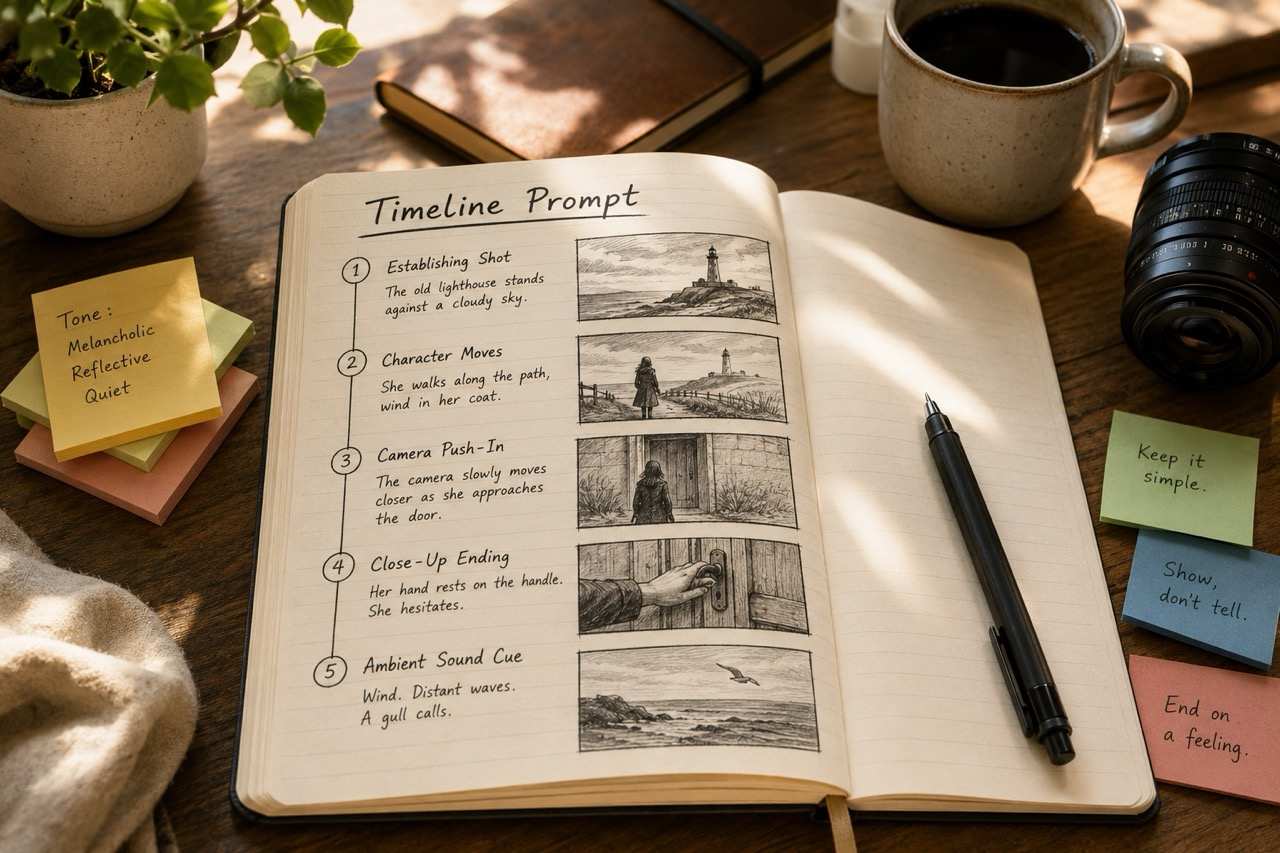 Timeline Prompt
1 Establishing Shot
The old lighthouse stands
against a cloudy sky.
2 Character Moves
She walks along the path,
wind in her coat.
3 Camera Push-In
The camera slowly moves
closer as she approaches
the door.
4 Close-Up Ending
Her hand rests on the handle.
She hesitates.
5 Ambient Sound Cue
Wind. Distant waves.
A gull calls.
Tone:
Melancholic
Reflective
Quiet
Keep it
simple.
Show,
don't tell.
End on
a feeling.